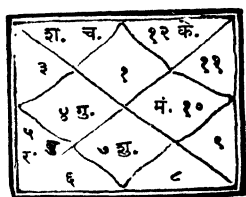 श. च. १२ के.
३ १ ११
४ गु. मं. १०
५ ९
र.
७ शु.
६ ८